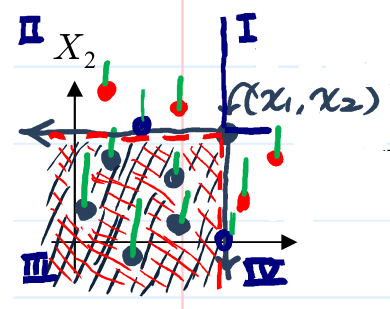 II I
X₂
f(x₁, x₂)
III IV